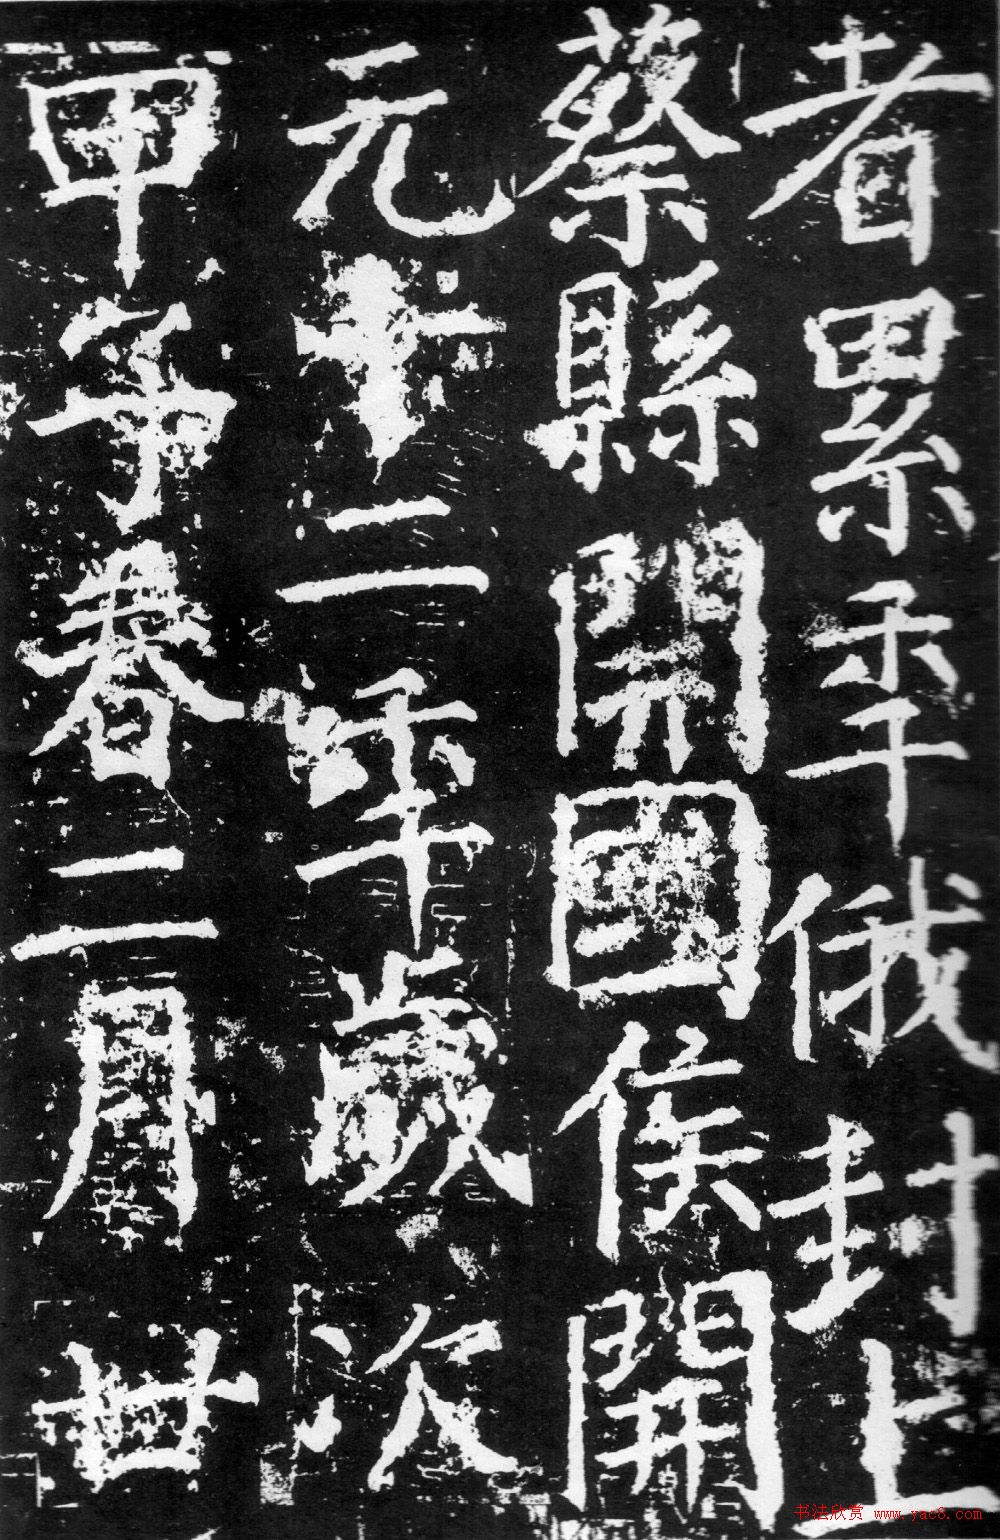 者累年俄封上
蔡縣開國侯開
元十二年歲次
甲子春二月廿
书法欣赏 www.yac8.com